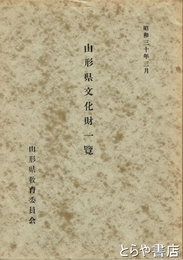 昭和三十年三月
山形県文化財一覧
山形県教育委員会
とらや書店